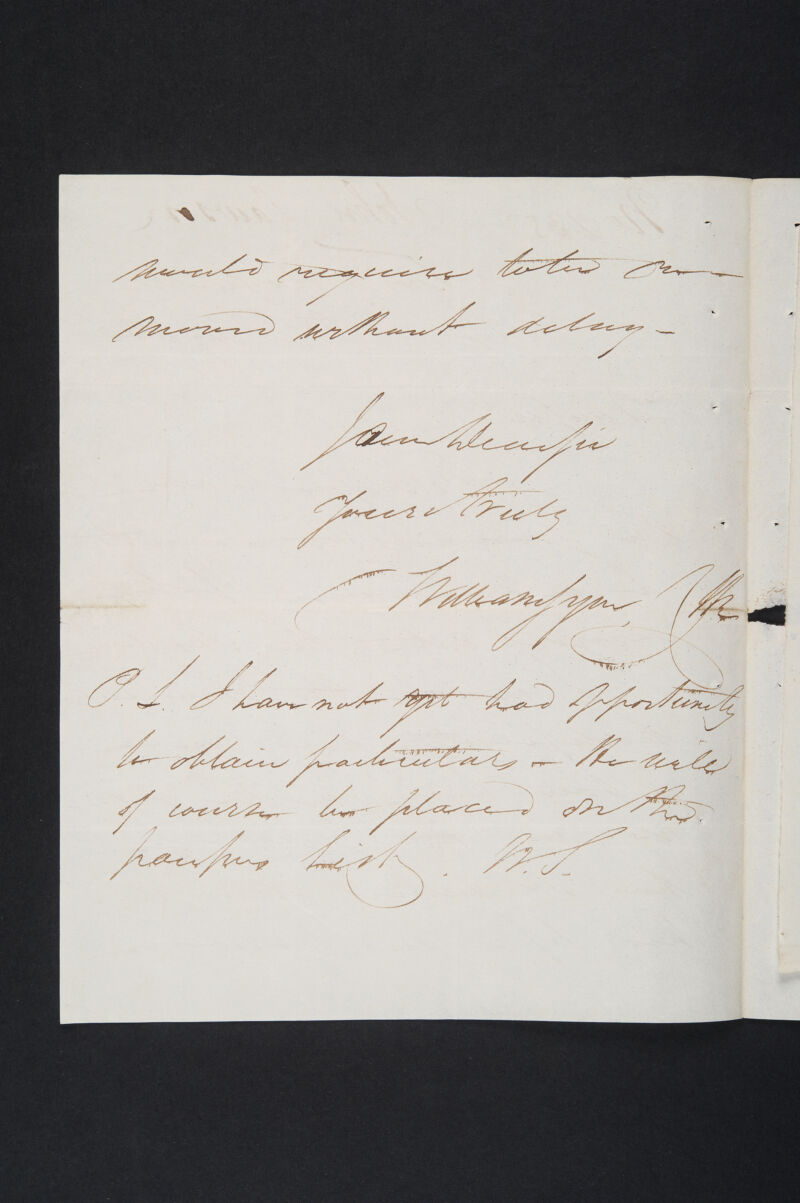 would require to be re-
moved without delay -
I am Dear Sir
Yours truly
William Syme
P.S. I have not yet had opportunity
to obtain particulars - He will
of course be placed on the
paupers list. W.S.